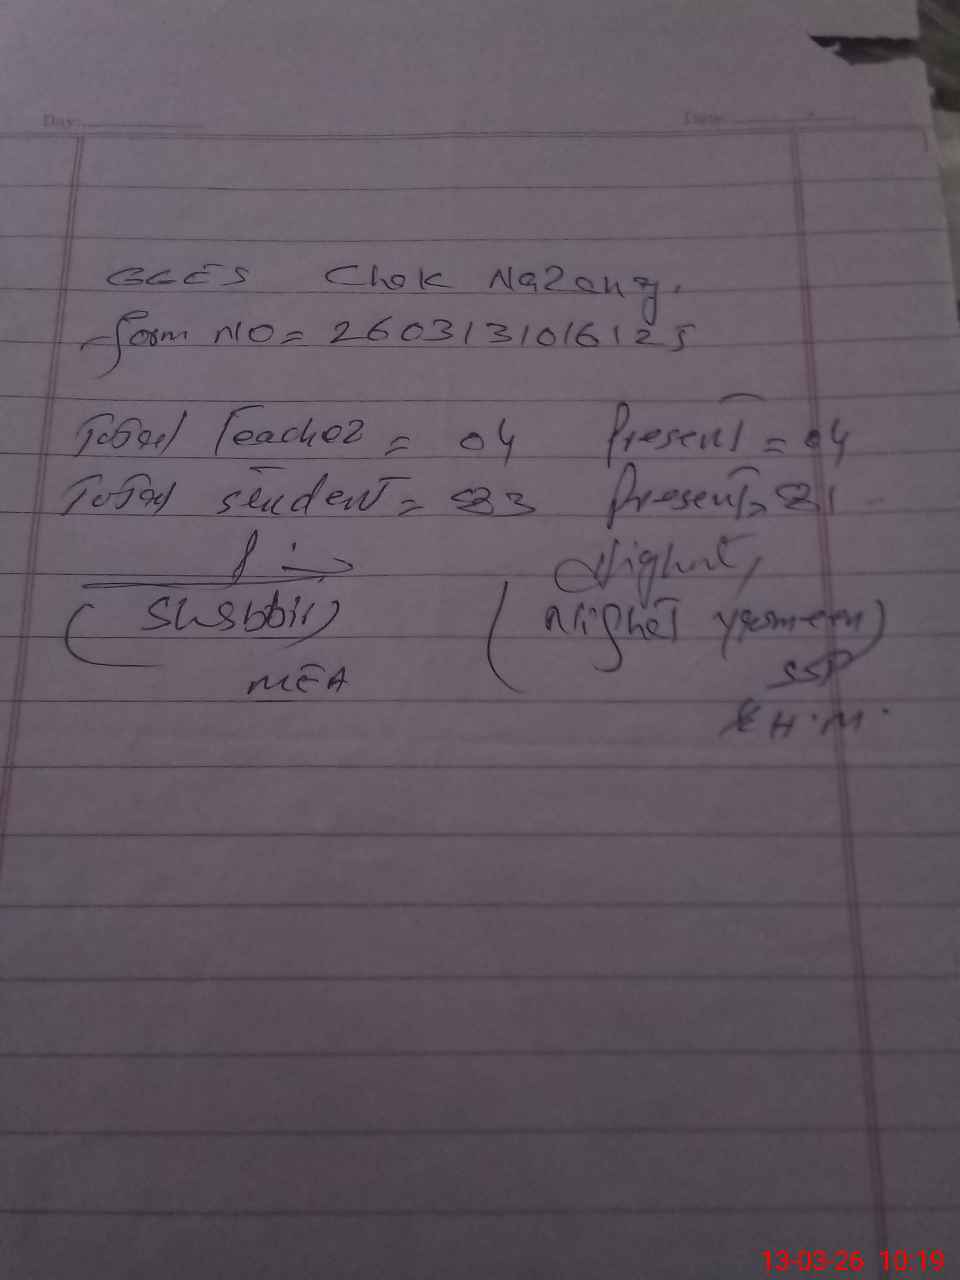 Day: Date:
GGES Chak Nazang.
form NO = 2603131016125
Total Teacher = 04 Present = 04
Total student = 83 Present = 81
(Shabbir) (Nighet Yasmeen)
MEA SSP
& H.M.
13-03-26 10:19